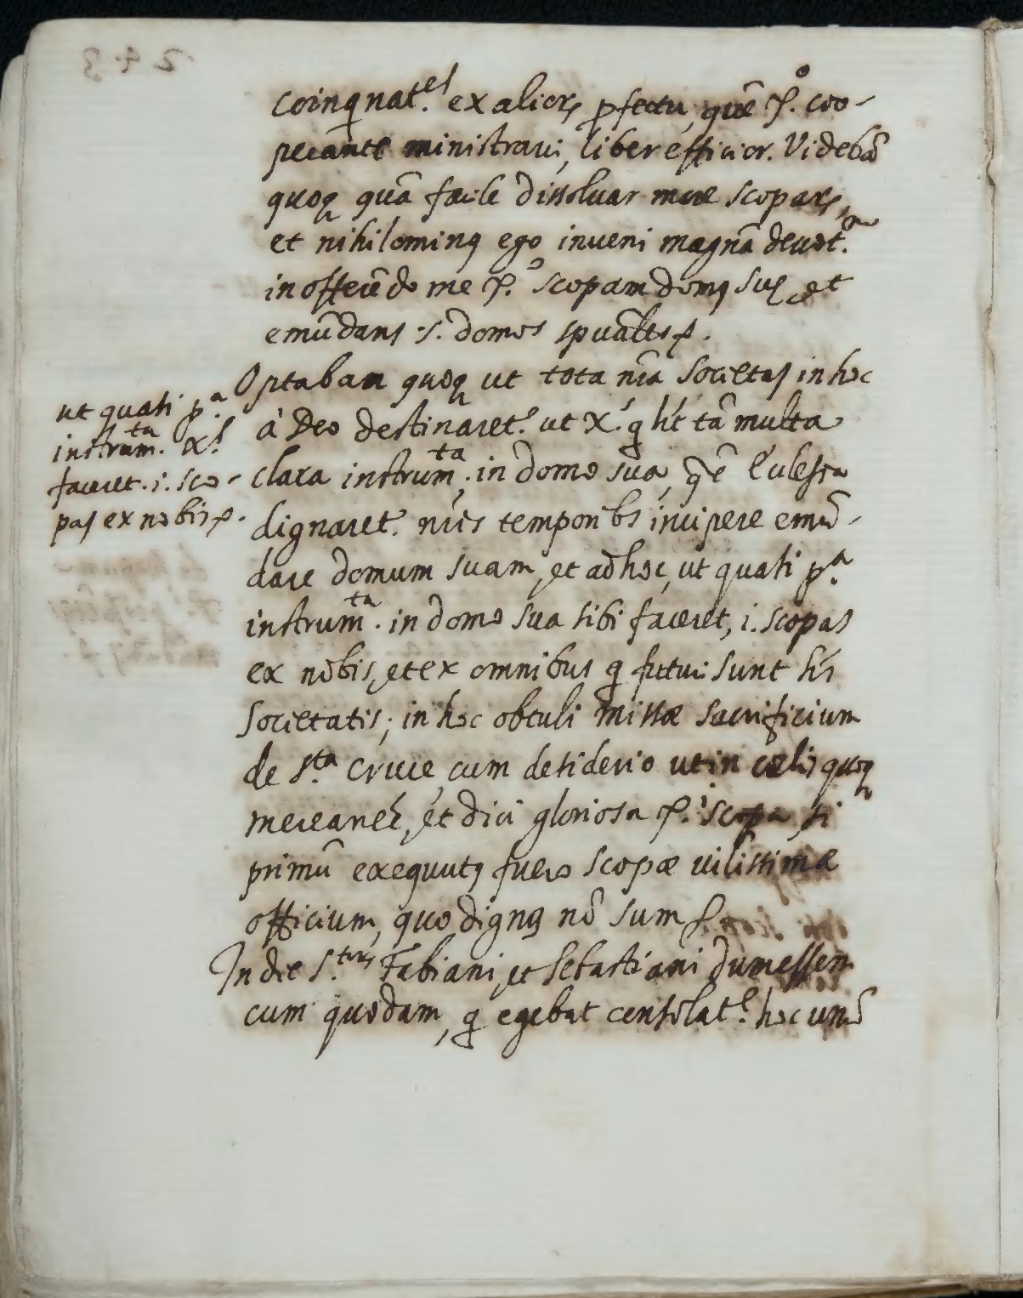 coinq̃nat.e ex alior₉ ꝓfectu, quē X.o coo-
perante ministravi, liber efficior. Videbā
quoq₃ quā facile dissolvar meae scopae,
et nihilomin₉ ego inveni magnā devot.ē
in offerēdo me X.o scopam dom₉ suę, et
emūdans .s. domos spuāles.
Optabam quoq₃ ut tota nr̄a Societas in hoc
à Deo destinaret.r ut X.s q̄ hēt tā multa
clara instrum.ta in domo sua, q̄ ē Ecclesia
dignaret.r nr̄is temporibs incipere emū-
dare domum suam, et ad hoc, ut quasi p.a
instrum.ta in domo sua sibi faceret, i. scopas
ex nobis, et ex omnibus q̄ futuri sunt hs̄
Societatis; in hoc obtuli missae sacrificium
de S.ta Cruce, cum desiderio ut in coelis quoq₃
merear, et dici gloriosa X.i scopa, si
primū exequut₉ fuero scopae vilissimae
officium, quo dign₉ nō sum
In die S.torum Fabiani, et Sebastiani dum essem
cum quodam, q̄ egebat consolat.e hoc unū
ut quasi p.a
instrum.ta X.s
faceret .i. sco-
pas ex nobis
243